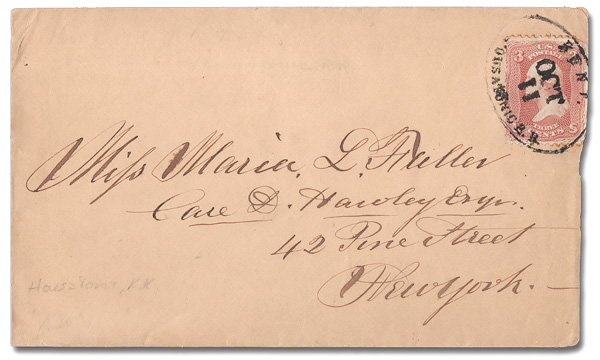 KENT.
OCT
11
U.S.
3
THREE
CENTS
Miss Maria. L. Fuller
Care D. Hawley Esqr.
42 Pine Street
New York.
Housatonic, R.R.